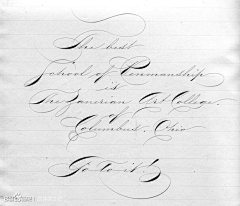 The best
School of Penmanship
is
The Zanerian Art College.
of
Columbus, Ohio
Go to it!